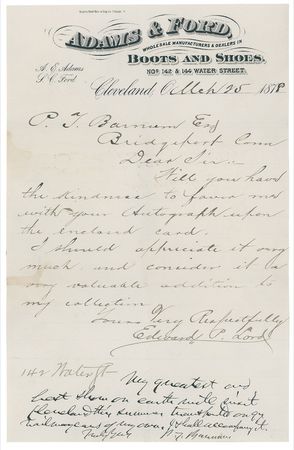 ADAMS & FORD,
WHOLESALE MANUFACTURERS & DEALERS IN
BOOTS AND SHOES.
A. E. Adams
Nos. 142 & 144 WATER STREET.
Cleveland, O. Mch 25 1878
P. T. Barnum Esq
Bridgeport Conn
Dear Sir:-
Will you have
the kindness to favor me
with your Autograph upon
the enclosed card.
I should appreciate it very
much and consider it a
very valuable addition to
my collection
Yours Very Respectfully
Edward P. Lord
142 Water St
My greatest and
best Show on earth will visit
Cleveland this summer transported on 99
railway cars of my own, & I shall accompany it.
Truly Yours P. T. Barnum